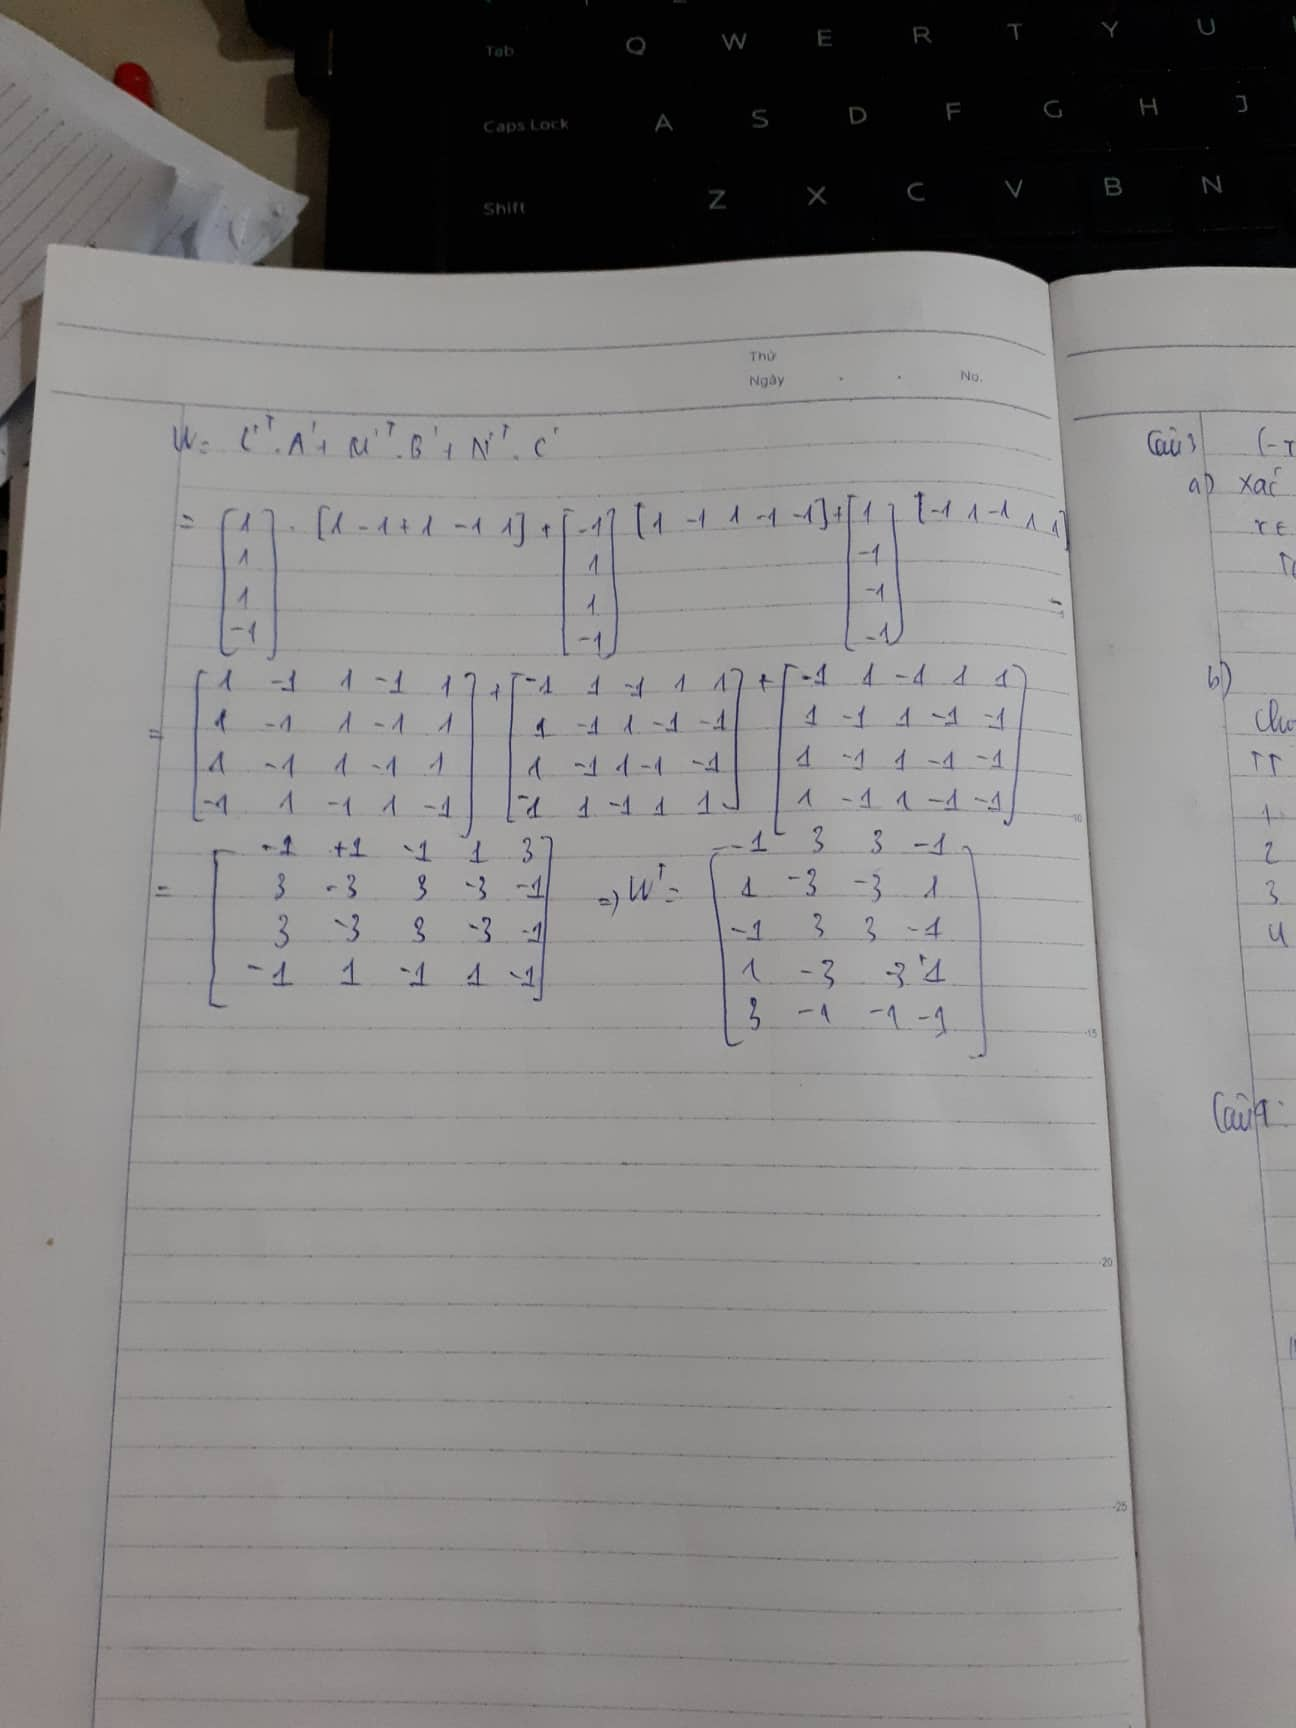 Tab Q W E R T Y U
Caps Lock A S D F G H J
Shift Z X C V B N
Thứ
Ngày . . No.
W = L'ᵀ.A' + M'ᵀ.B' + N'ᵀ.C'
= [1 . [1 -1 +1 -1 1] + [-1 [1 -1 1 -1 -1] + [1 [-1 1 -1 1 1]
1 1 -1
1 1 -1 =
-1] -1] -1]
[1 -1 1 -1 1] + [-1 1 -1 1 1] + [-1 1 -1 1 1]
= 1 -1 1 -1 1 1 -1 1 -1 -1 1 -1 1 -1 -1
1 -1 1 -1 1 1 -1 1 -1 -1 1 -1 1 -1 -1
-1 1 -1 1 -1 -1 1 -1 1 1 1 -1 1 -1 -1
10
[-1 +1 -1 1 3] [-1 3 3 -1]
= 3 -3 3 -3 -1 => Wᵀ = 1 -3 -3 1
3 -3 3 -3 -1 -1 3 3 -1
-1 1 -1 1 -1 1 -3 -3 1
3 -1 -1 -1
15
20
25
Câu 3 (-
a) xác
b)
1
2
3
4
Câu 4: